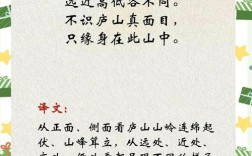 远近高低各不同。
不识庐山真面目，
只缘身在此山中。
译文：
从正面、侧面看庐山山岭连绵起
伏、山峰耸立，从远处、近处、